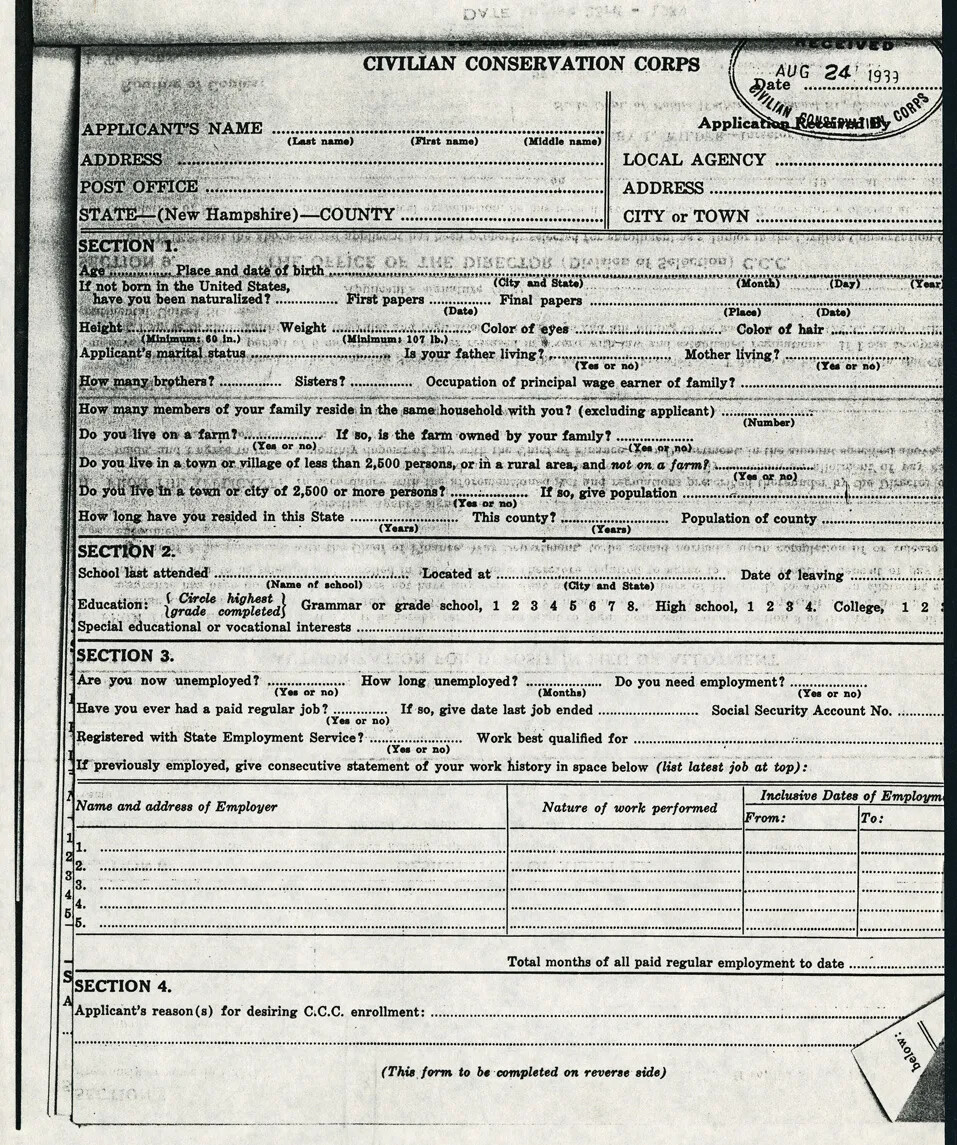 CIVILIAN CONSERVATION CORPS
RECEIVED
AUG 24 1939
CIVILIAN CONSERVATION CORPS
Date
Application Received By
APPLICANT'S NAME
(Last name) (First name) (Middle name)
ADDRESS
POST OFFICE
STATE—(New Hampshire)—COUNTY
LOCAL AGENCY
ADDRESS
CITY or TOWN
SECTION 1.
Age Place and date of birth
(City and State) (Month) (Day) (Year
If not born in the United States,
have you been naturalized? First papers Final papers
(Date) (Place) (Date)
Height Weight Color of eyes Color of hair
(Minimum: 60 in.) (Minimum: 107 lb.)
Applicant's marital status Is your father living? Mother living?
(Yes or no) (Yes or no)
How many brothers? Sisters? Occupation of principal wage earner of family?
How many members of your family reside in the same household with you? (excluding applicant)
(Number)
Do you live on a farm? If so, is the farm owned by your family?
(Yes or no) (Yes or no)
Do you live in a town or village of less than 2,500 persons, or in a rural area, and not on a farm?
(Yes or no)
Do you live in a town or city of 2,500 or more persons? If so, give population
(Yes or no)
How long have you resided in this State This county? Population of county
(Years) (Years)
SECTION 2.
School last attended Located at Date of leaving
(Name of school) (City and State)
Education: { Circle highest grade completed } Grammar or grade school, 1 2 3 4 5 6 7 8. High school, 1 2 3 4. College, 1 2
Special educational or vocational interests
SECTION 3.
Are you now unemployed? How long unemployed? Do you need employment?
(Yes or no) (Months) (Yes or no)
Have you ever had a paid regular job? If so, give date last job ended Social Security Account No.
(Yes or no)
Registered with State Employment Service? Work best qualified for
(Yes or no)
If previously employed, give consecutive statement of your work history in space below (list latest job at top):
Name and address of Employer Nature of work performed Inclusive Dates of Employm
From: To:
1.
2.
3.
4.
5.
Total months of all paid regular employment to date
SECTION 4.
Applicant's reason(s) for desiring C.C.C. enrollment:
below:
(This form to be completed on reverse side)